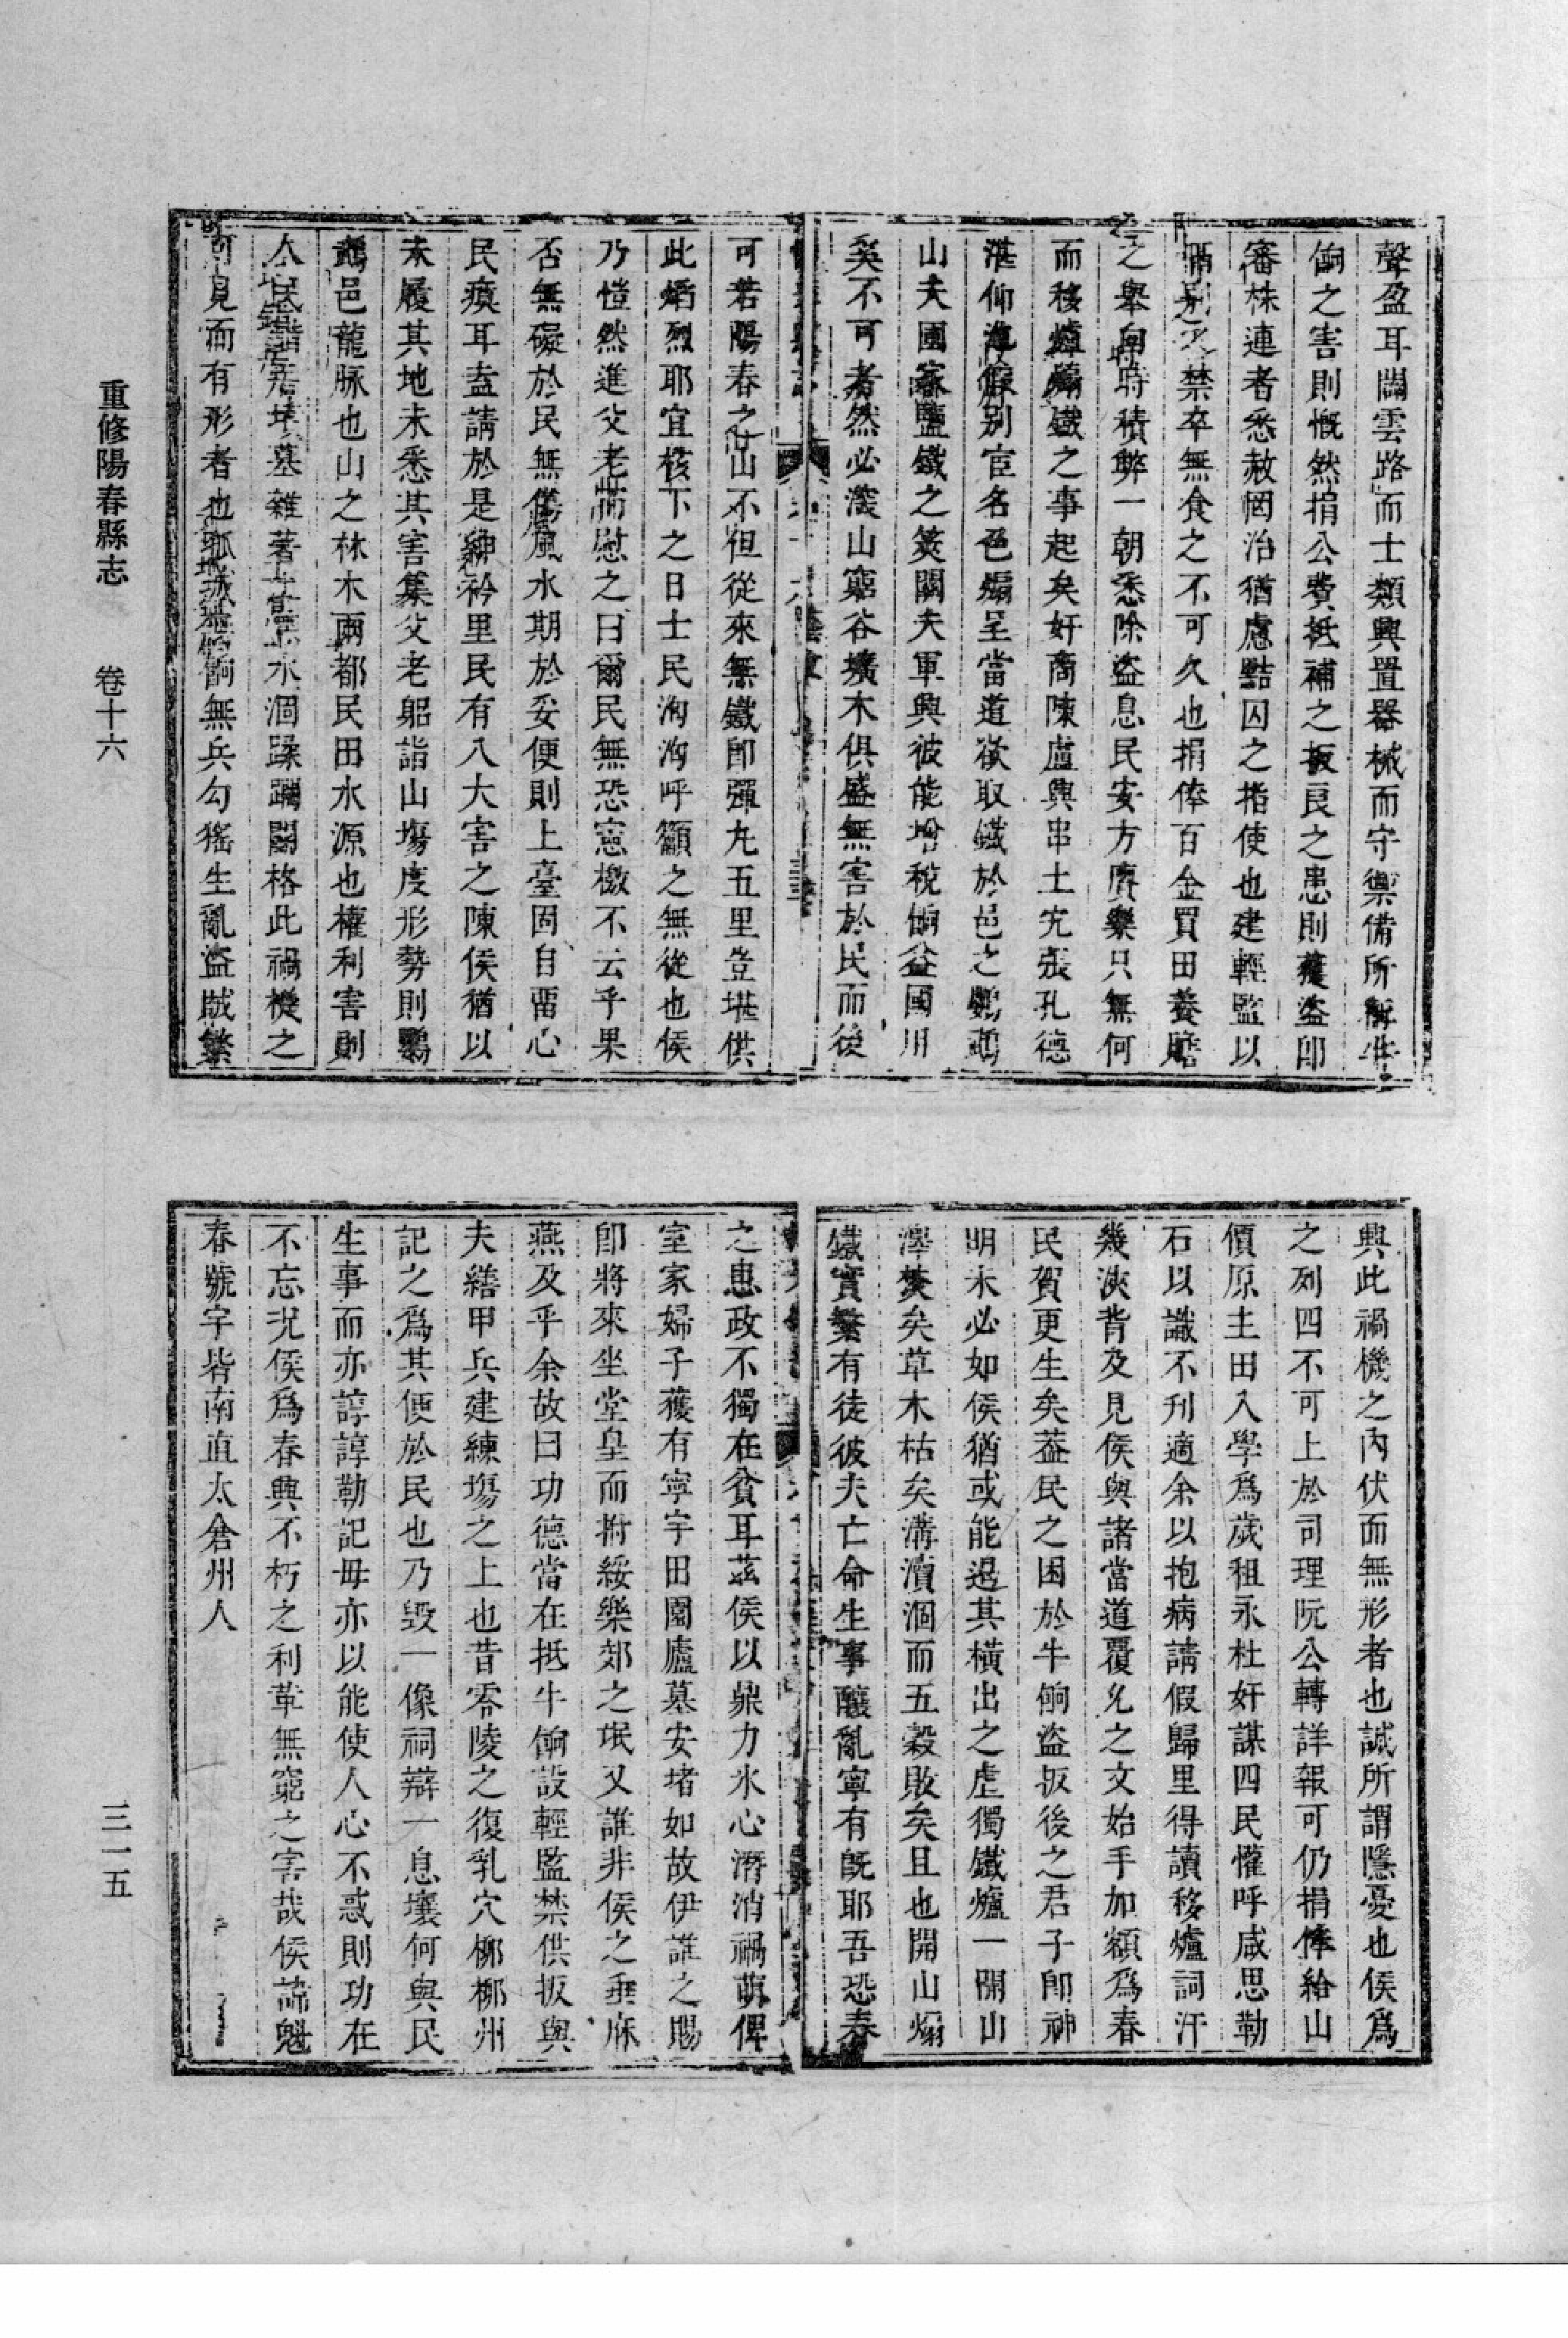 聲盈耳闢雲路而士類興置器械而守禦備所解牛
餉之害則慨然捐公費抵補之扳良之患則獲盜即
審株連者悉赦罔治猶慮點囚之指使也建輕監以
別之禁卒無食之不可久也捐俸百金買田養贍
之舉向時積弊一朝悉除盜息民安方賡樂只無何
而移爐煽鐵之事起矣奸商陳盧興串土宄張孔德
湛仰進假別宦名色煽呈當道欲取鐵於邑之鸚鵡
山夫國家鹽鐵之筴關夫軍興彼能增稅餉益國用
奚不可者然必深山窮谷壙木俱盛無害於民而後
可若陽春之山不但從來無鐵即彈丸五里豈堪供
此熖烈耶宜檄下之日士民洶洶呼籲之無從也侯
乃愷然進父老而慰之曰爾民無恐憲檄不云乎果
否無礙於民無傷風水期於妥便則上臺固自留心
民瘼耳盍請於是紳衿里民有八大害之陳侯猶以
未履其地未悉其害集父老躬詣山塲度形勢則鸚
鵡邑龍脉也山之林木兩都民田水源也權利害則
人民居墳墓雜著水涸蹂躝鬬格此禍機之
可見而有形者也孤城無餉無兵勾猺生亂盜賊繁
興此禍機之內伏而無形者也誠所謂隱憂也侯爲
之列四不可上於司理阮公轉詳報可仍捐俸給山
價原主田入學爲歲租永杜奸謀四民懽呼咸思勒
石以識不刊適余以抱病請假歸里得讀移爐詞汗
幾浹背及見侯與諸當道覆允之文始手加額爲春
民賀更生矣葢民之困於牛餉盜扳後之君子即神
明未必如侯猶或能退其橫出之虐獨鐵爐一開山
澤焚矣草木枯矣溝瀆涸而五穀敗矣且也開山煽
鐵實繁有徒彼夫亡命生事釀亂寧有旣耶吾恐春
之惠政不獨在貧耳茲侯以鼎力氷心潛消禍萌俾
室家婦子獲有寧宇田園廬墓安堵如故伊誰之賜
即將來坐堂皇而拊綏樂郊之氓又誰非侯之垂庥
燕及乎余故曰功德當在抵牛餉設輕監禁供扳與
夫繕甲兵建練塲之上也昔零陵之復乳穴栁栁州
記之爲其便於民也乃毀一像祠辯一息壤何與民
生事而亦諄諄勒記毋亦以能使人心不惑則功在
不忘況侯爲春興不朽之利革無窮之害哉侯諱魁
春號宇喈南直太倉州人
重修陽春縣志 卷十六
三一五